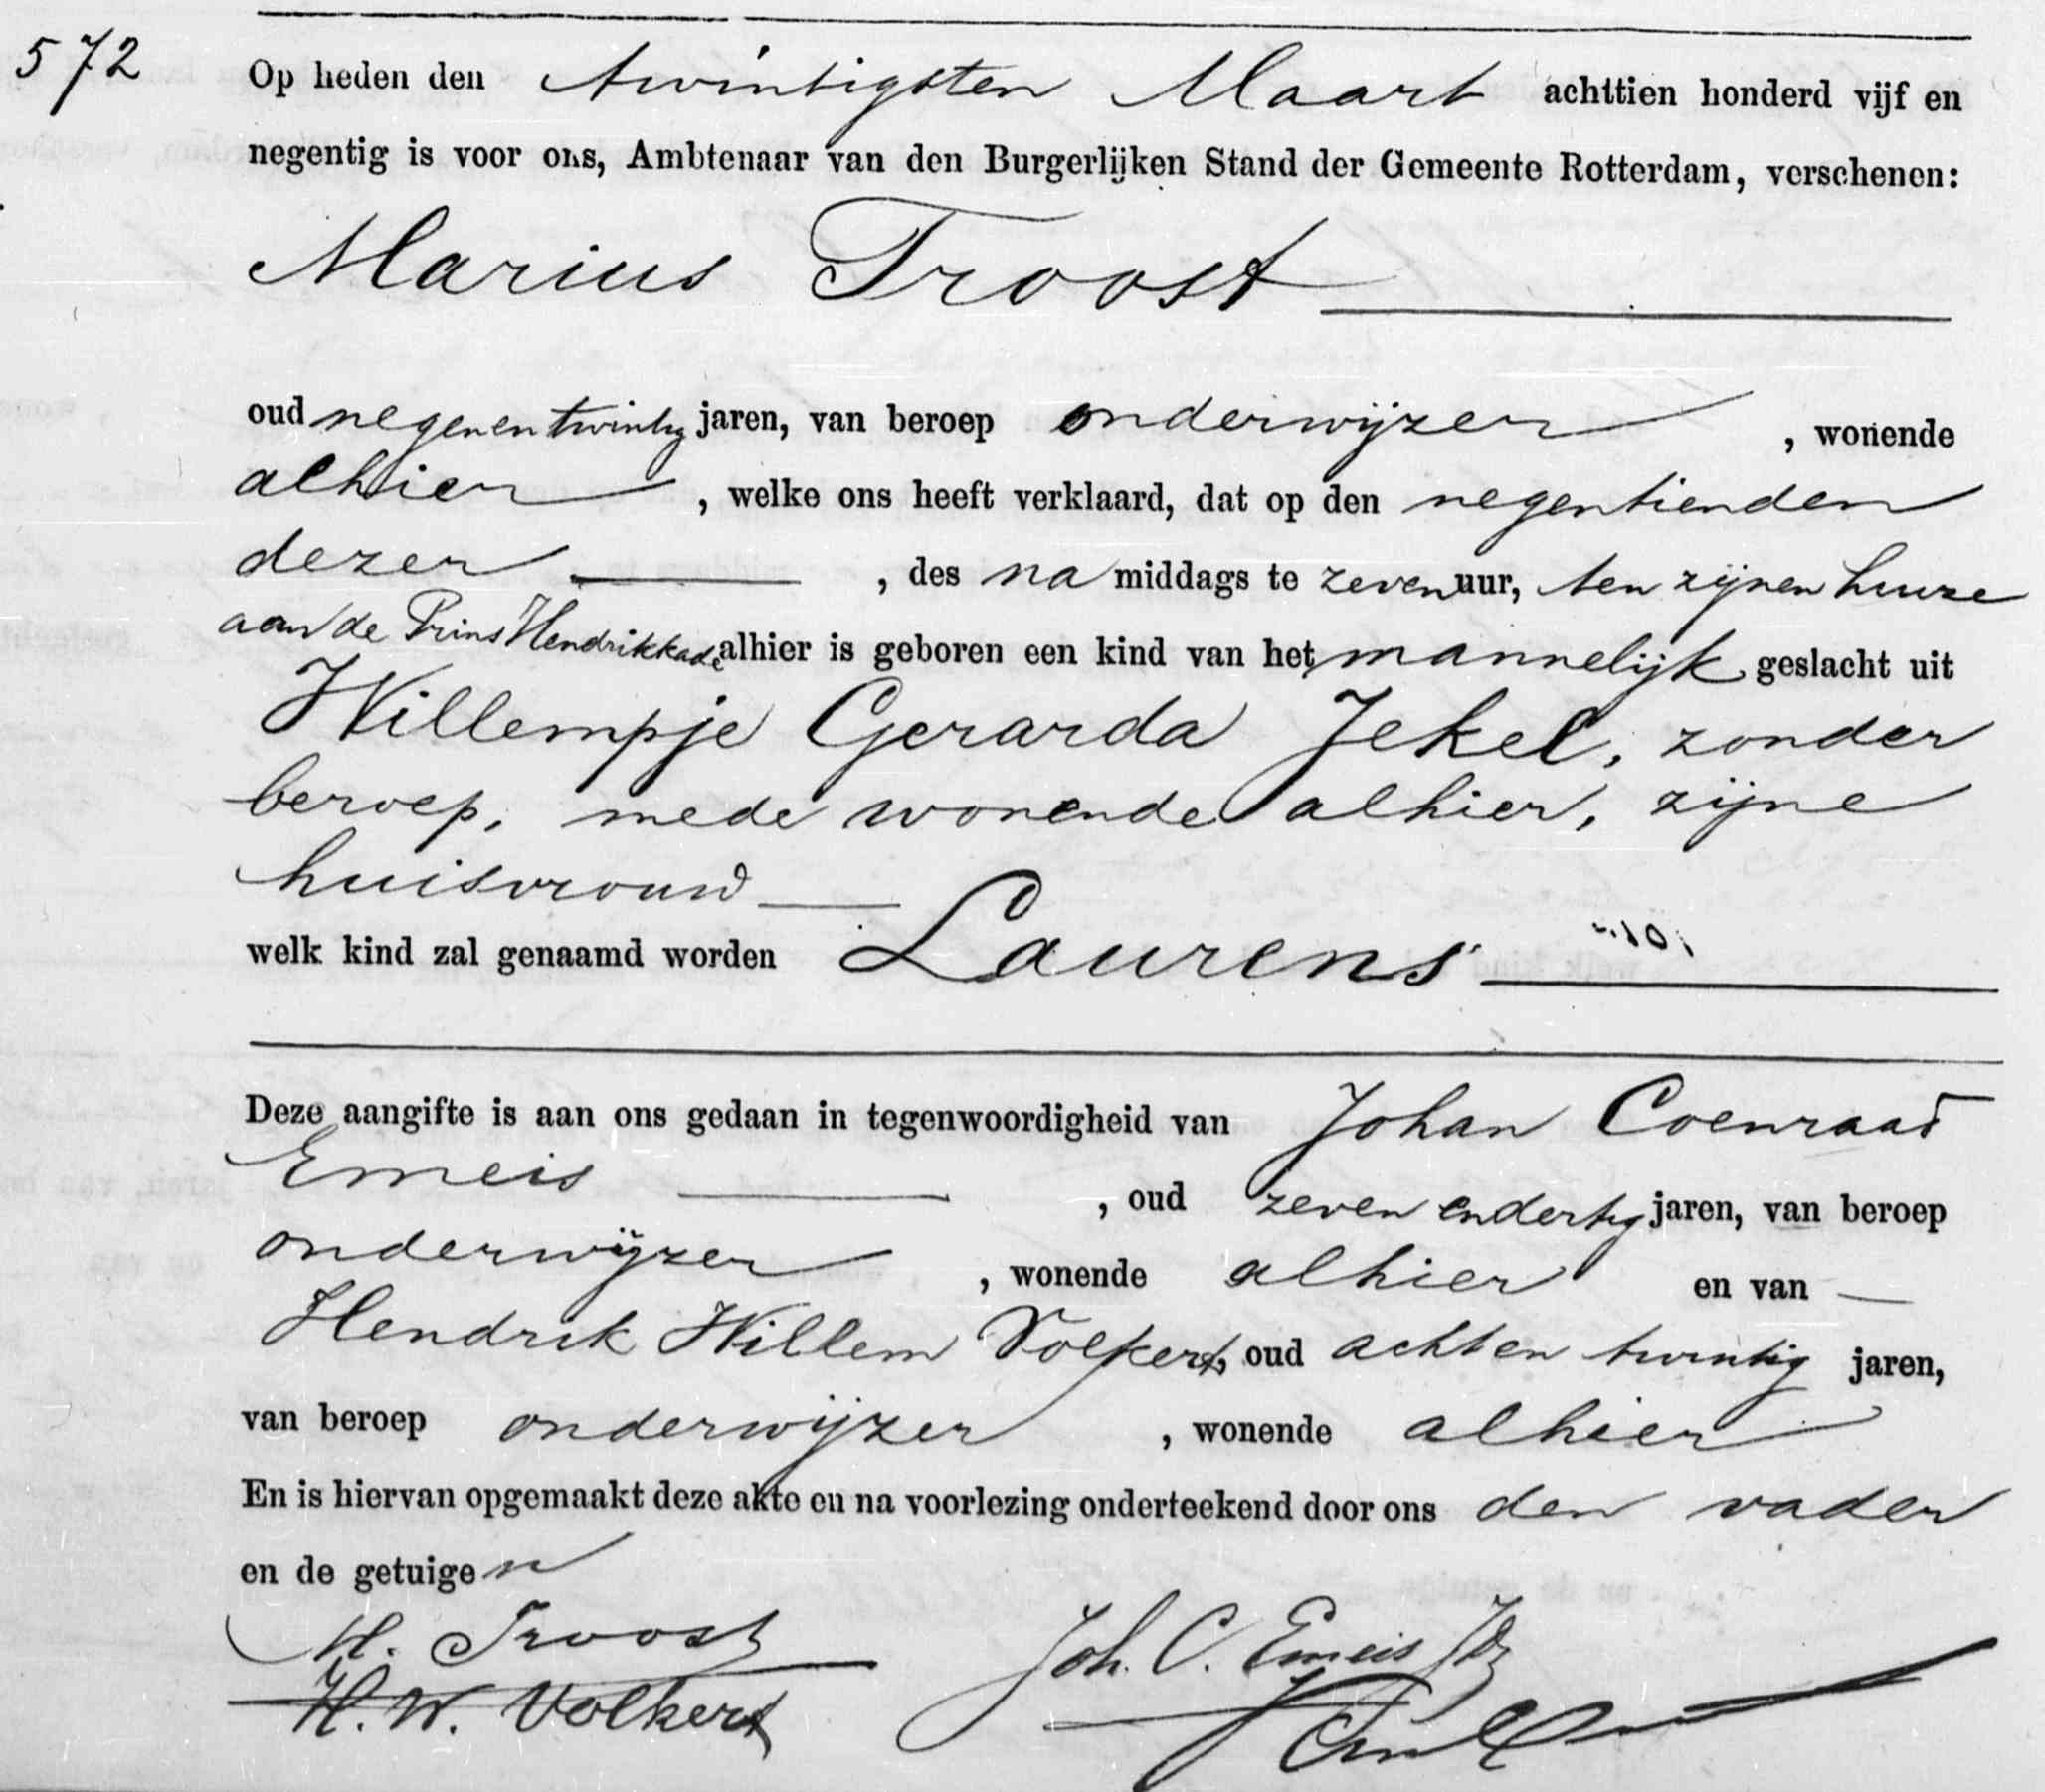 572
Op heden den twintigsten Maart achttien honderd vijf en
negentig is voor ons, Ambtenaar van den Burgerlijken Stand der Gemeente Rotterdam, verschenen:
Marius Troost
oud negenentwintig jaren, van beroep onderwijzer, wonende
alhier, welke ons heeft verklaard, dat op den negentienden
dezer, des na middags te zeven uur, ten zijnen huize
aan de Prins Hendrikkade alhier is geboren een kind van het mannelijk geslacht uit
Willempje Gerarda Jekel, zonder
beroep, mede wonende alhier, zijne
huisvrouw
welk kind zal genaamd worden Laurens
Deze aangifte is aan ons gedaan in tegenwoordigheid van Johan Coenraad
Emeis, oud zeven en dertig jaren, van beroep
onderwijzer, wonende alhier en van
Hendrik Willem Volkert, oud acht en twintig jaren,
van beroep onderwijzer, wonende alhier
En is hiervan opgemaakt deze akte en na voorlezing onderteekend door ons den vader
en de getuigen
M. Troost
Joh. C. Emeis
H. W. Volkert